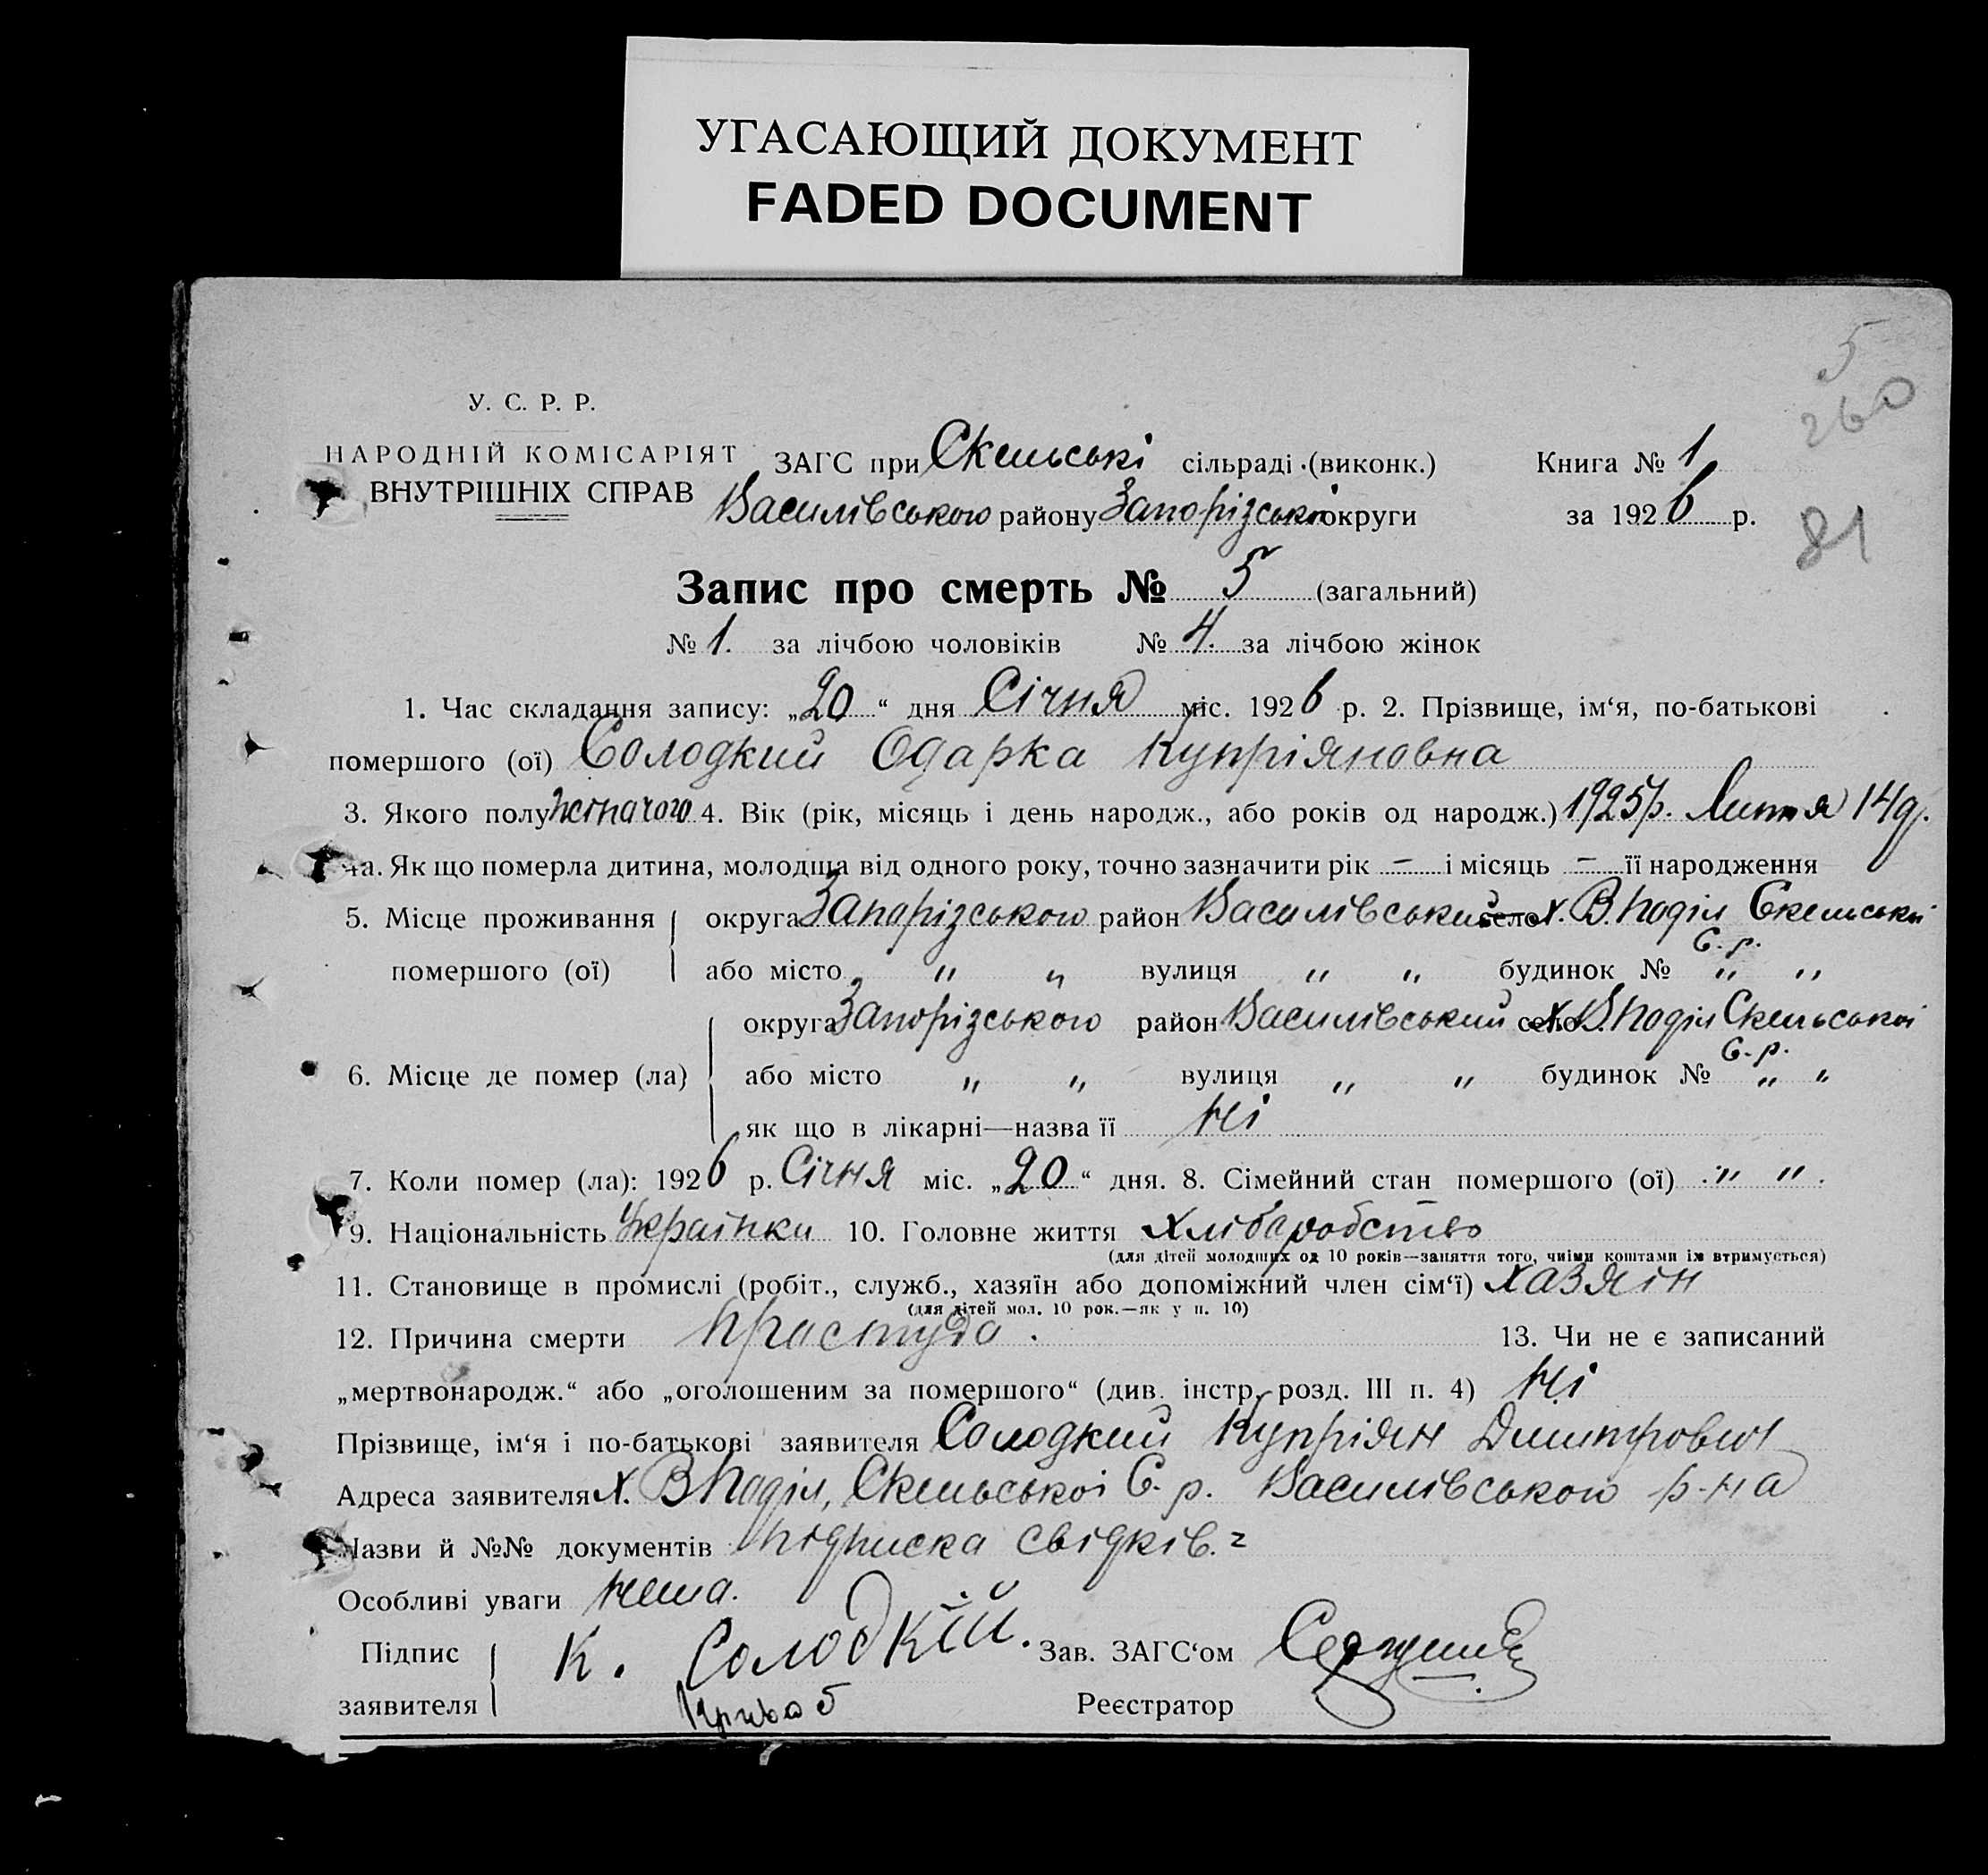 УГАСАЮЩИЙ ДОКУМЕНТ
FADED DOCUMENT
5
260
81
У. С. Р. Р.
НАРОДНІЙ КОМІСАРІЯТ
ВНУТРІШНІХ СПРАВ
ЗАГС при Скельські сільраді (виконк.) Книга № 1
Василівського району Запорізської округи за 1926 р.
Запис про смерть № 5 (загальний)
№ 1. за лічбою чоловіків № 4. за лічбою жінок
1. Час складання запису: „20“ дня Січня міс. 1926 р. 2. Прізвище, ім‘я, по-батькові
помершого (ої) Солодкий Одарка Купріяновна
3. Якого полу жіночого 4. Вік (рік, місяць і день народж., або років од народж.) 1925р. Липня 14д.
4а. Як що померла дитина, молодща від одного року, точно зазначити рік — і місяць — її народження
5. Місце проживання округа Запорізського район Василівський село х. В. Поділ Скельської
С. р.
помершого (ої) або місто „ „ вулиця „ „ будинок № „ „
округа Запорізського район Василівський село х. В. Поділ Скельської
С. р.
6. Місце де помер (ла) або місто „ „ вулиця „ „ будинок № „ „
як що в лікарні—назва її Ні
7. Коли помер (ла): 1926 р. Січня міс. „20“ дня. 8. Сімейний стан помершого (ої) „ „
9. Національність Українки 10. Головне життя Хліборобство
(для дітей молодщих од 10 років—заняття того, чиїми коштами їх втримується)
11. Становище в промислі (робіт., служб., хазяїн або допоміжний член сім‘ї) хазяїн
(для дітей мол. 10 рок.—як у п. 10)
12. Причина смерти Простуда. 13. Чи не є записаний
„мертвонародж.“ або „оголошеним за помершого“ (див. інстр. розд. III п. 4) Ні
Прізвище, ім‘я і по-батькові заявителя Солодкий Купріян Дмитрович
Адреса заявителя х. В Поділ, Скельської С. р. Василівського р-на
Назви й №№ документів Підписка свідків. 2
Особливі уваги Нема.
Підпис К. Солодкїй. Зав. ЗАГС‘ом
заявителя Реєстратор